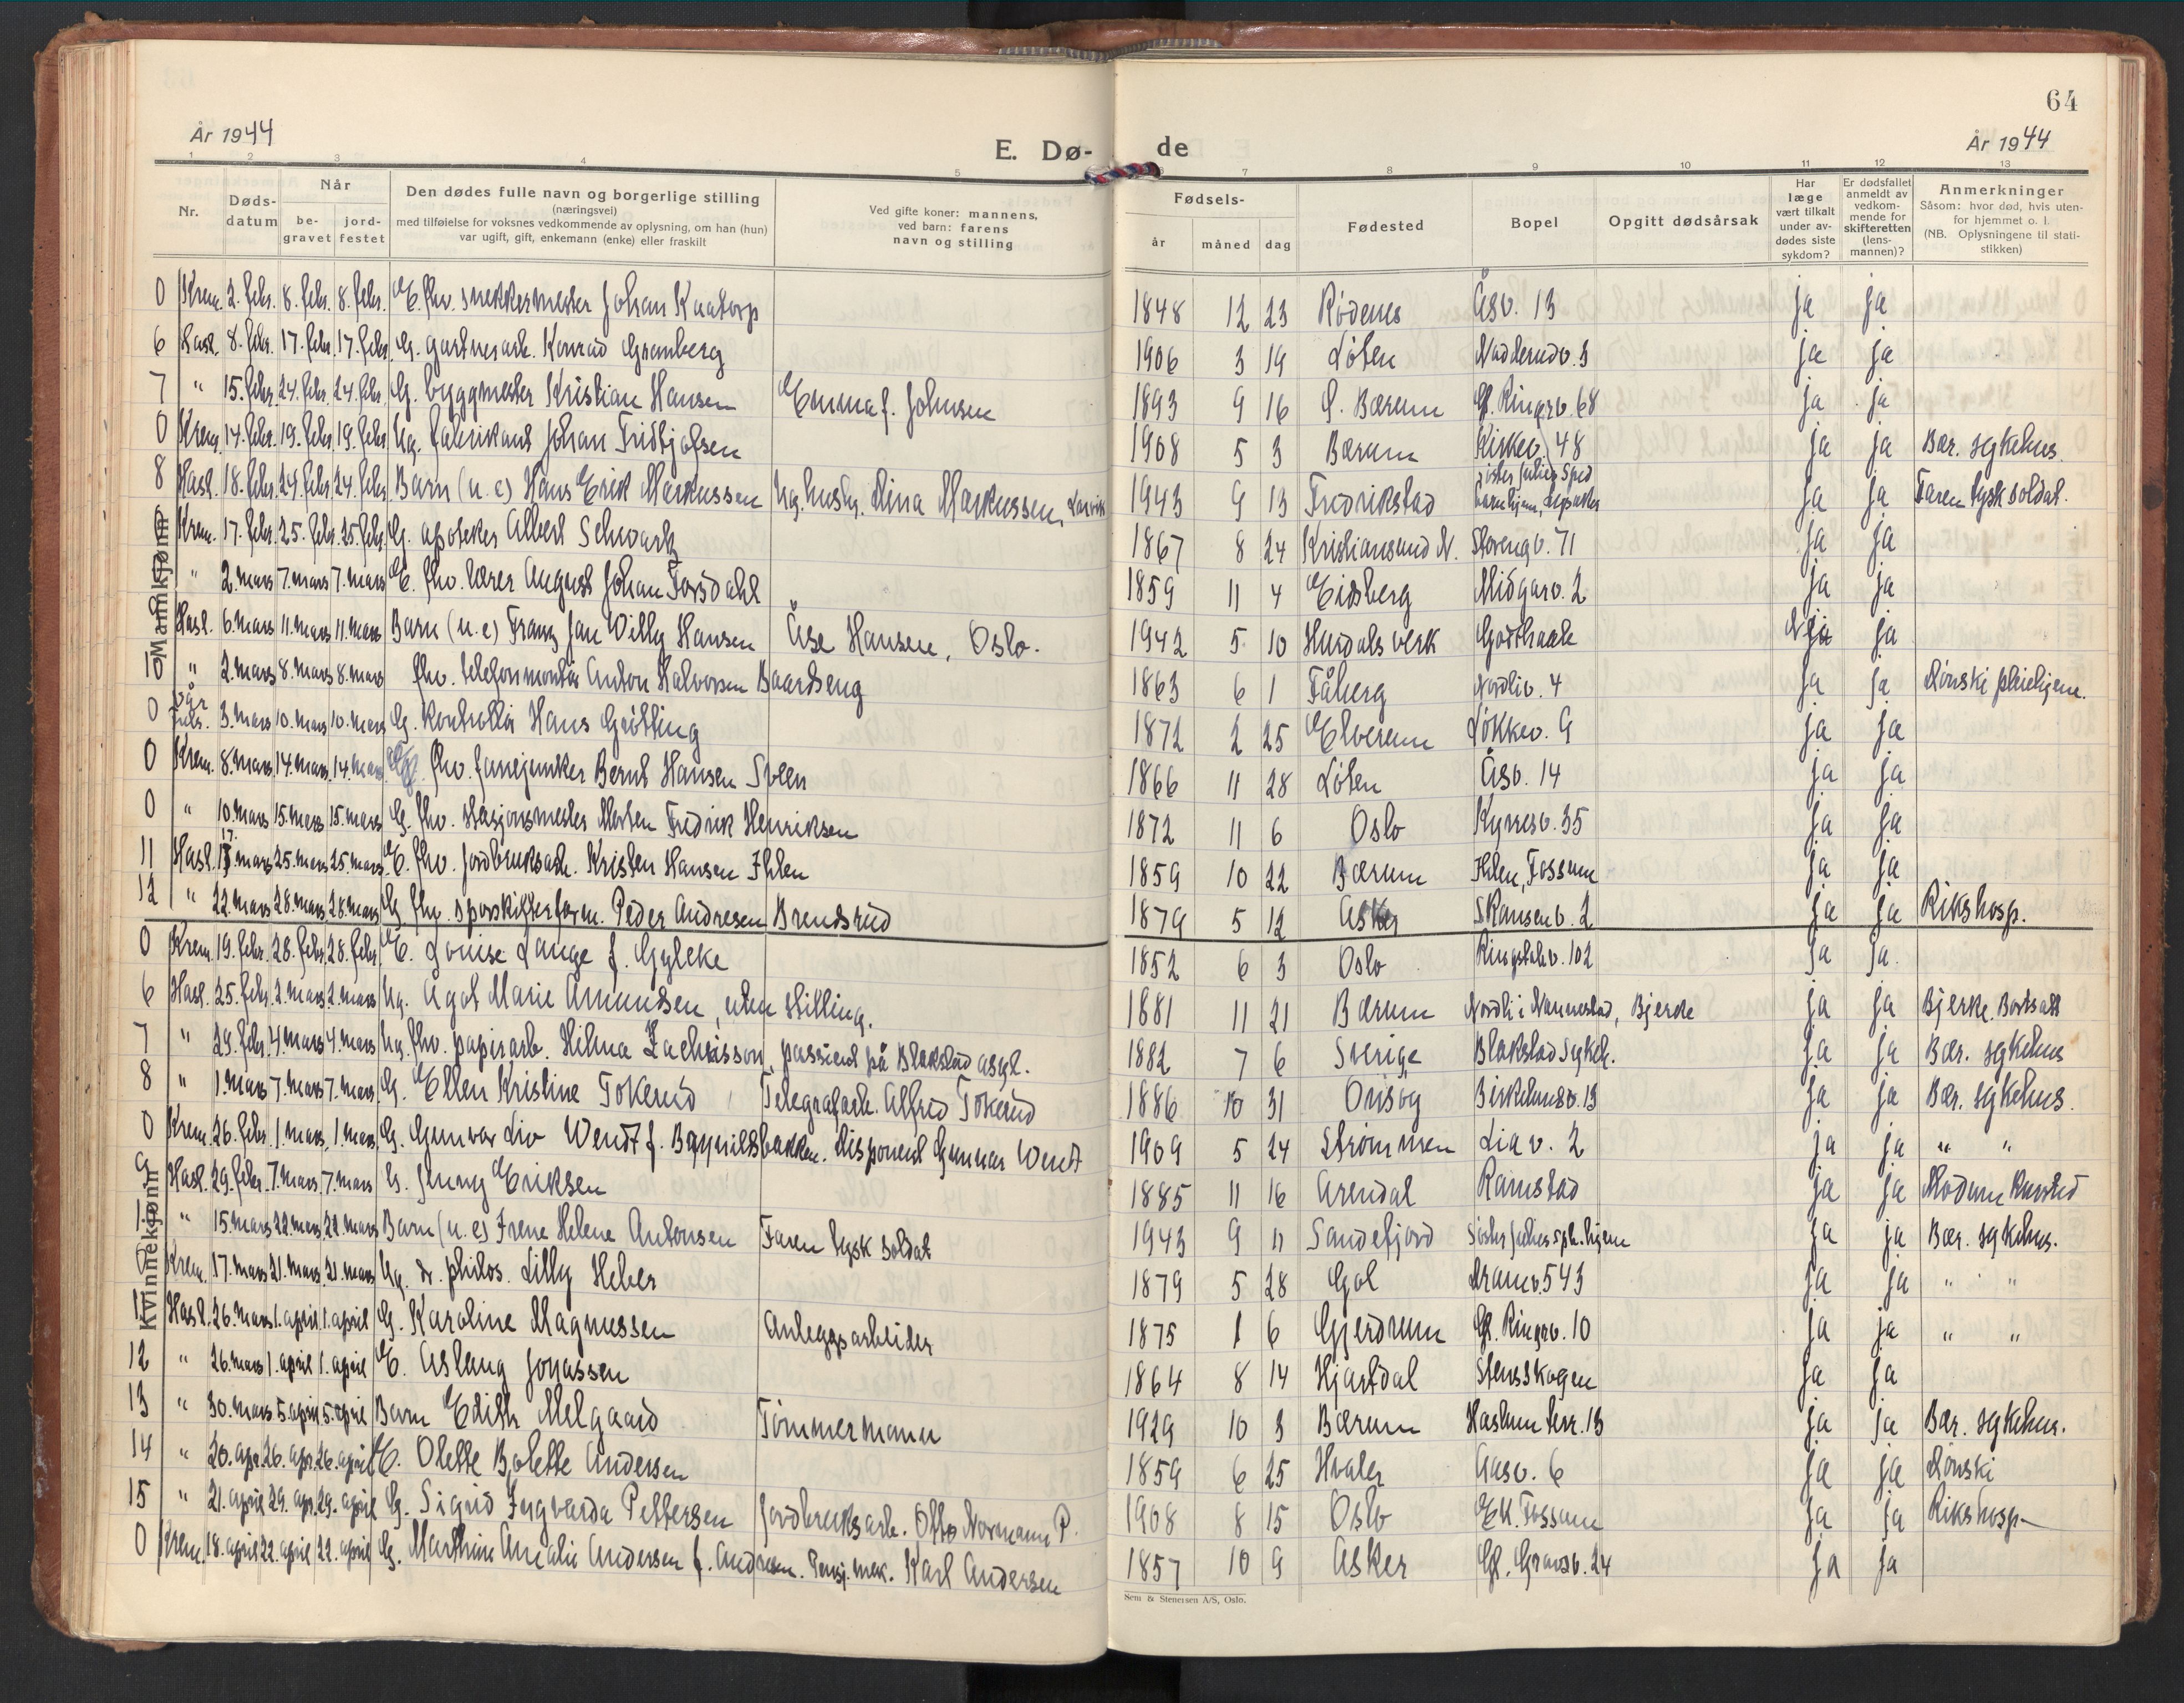 64
År 1944
E. Dø-
de
År 1944
1 2 3 4 5 6 7 8 9 10 11 12 13
Nr.
Døds-
datum
Når
be-
gravet
jord-
festet
Den dødes fulle navn og borgerlige stilling
(næringsvei)
med tilføielse for voksnes vedkommende av oplysning, om han (hun)
var ugift, gift, enkemann (enke) eller fraskilt
Ved gifte koner: mannens,
ved barn: farens
navn og stilling
Fødsels-
år måned dag
Fødested
Bopel
Opgitt dødsårsak
Har
læge
vært tilkalt
under av-
dødes siste
sykdom?
Er dødsfallet
anmeldt av
vedkom-
mende for
skifteretten
(lens-
mannen)?
Anmerkninger
Såsom: hvor død, hvis uten-
for hjemmet o. l.
(NB. Oplysningene til stati-
stikken)
Mannkjønn
0 Krem. 2. febr. 8. febr. 8. febr. E. fhv. snekkermester Johan Kaatorp 1848 12 23 Rødenes Åsv. 13 ja ja
6 Hasl. 8. febr. 17. febr. 17. febr. G. gartnerarb. Konrad Gramberg 1906 3 19 Løten Nadderudv. 3 ja ja
7 " 15. febr. 24. febr. 24. febr. G. byggmester Kristian Hansen Emma f. Johnsen 1893 9 16 Ø. Bærum Gl. Ringrv. 68 ja ja
0 Krem. 14. febr. 19. febr. 19. febr. Ug. fabrikant Johan Fridtjofsen 1908 5 3 Bærum Kirkev. 48 ja ja Bær. sykehus.
8 Hasl. 18. febr. 24. febr. 24. febr. Barn (u.e) Hans Erik Markussen Ug. hush. Mina Markussen, Larvik 1943 9 13 Fredrikstad barnehjem, ja ja Faren tysk soldat.
Krem. 17. febr. 25. febr. 25. febr. G. apoteker Albert Schwartz 1867 8 24 Kristiansund N. Storengv. 71 ja ja
" 2. mars 7. mars 7. mars E. fhv. lærer August Johan Torsdahl 1859 11 4 Eidsberg Midgarv. 2 ja ja
Hasl. 6. mars 11. mars 11. mars Barn (u.e) Franz Jan Willy Hansen Åse Hansen, Oslo. 1942 5 10 Hurdals verk Godthaab Nei ja
10 " 2. mars 8. mars 8. mars fhv. telefonmontør Anton Halvorsen Baardseng 1863 6 1 Fåberg Nordliv. 4 ja ja Dønski pleiehjem.
0 Vår Frels. 3. mars 10. mars 10. mars G. kontrollør Hans Grøtting 1872 2 25 Elverum Løkkev. 9 ja ja
0 Krem. 8. mars 14. mars 14. mars G. fhv. fanejunker Bernt Hansen Sveen 1866 11 28 Løten Åsv. 14 ja ja
0 " 10. mars 15. mars 15. mars G. fhv. stasjonsmester Morten Fredrik Henriksen 1872 11 6 Oslo Kyrresv. 35 ja ja
11 Hasl. 17. mars 25. mars 25. mars E. fhv. jordbruksarb. Kristen Hansen Ihlen 1859 10 22 Bærum Ihlen, Fossum ja ja
12 " 22. mars 28. mars 28. mars G fhv. sporskifterform. Peder Andresen Brendsrud 1879 5 12 Asker Skansenv. 2 ja ja Rikshosp.
Kvinnekjønn
0 Krem. 19. febr. 28. febr. 28. febr. E. Louise Lange f. Gyleke 1852 6 3 Oslo Ringstabv. 102 ja ja
6 Hasl. 25. febr. 2. mars 2. mars Ug. Agot Marie Amundsen, uten stilling. 1881 11 21 Bærum Nordli i Nannestad, Bjerke ja ja Bjerke. Bortsatt
7 " 29. febr. 4. mars 4. mars Ug. fhv. papirarb. Hilma Zachrisson, passient på Blakstad asyl. 1882 7 6 Sverige Blakstad Sykeh. ja ja Bær. sykehus
8 " 1. mars 7. mars 7. mars G. Ellen Kristine Tokerud Telegrafarb. Alfred Tokerud 1886 10 31 Onsøy Birkelundv. 13 ja ja Bær. sykehus.
0 Krem. 26. febr. 1. mars 1. mars G. Gunvor Liv Wendt f. Bøynildsbakken. disponent Gunnar Wendt 1909 5 24 Strømmen Liav. 2 ja ja " "
9 Hasl. 29. febr. 7. mars 7. mars G. Jenny Eriksen 1885 11 16 Arendal Ramstad ja ja Modum Kursted
" 15. mars 22. mars 22. mars Barn (u.e) Irene Helene Antonsen Faren tysk soldat 1943 9 11 Sandefjord Søster Julies sp.b.hjem ja ja Bær. sykehus.
0 Krem. 17. mars 21. mars 21. mars Ug. dr. philos. Lilly Heber 1879 5 28 Gol Dramv 543 ja ja " "
11 Hasl. 26. mars 1. april 1. april G. Karoline Magnussen Anleggsarbeider 1875 1 6 Gjerdrum Gl. Ringrv. 10 ja ja " "
12 " 26. mars 1. april 1. april E. Aslaug Jonassen 1864 8 14 Hjartdal Stensskogen ja ja
13 " 30. mars 5. april 5. april Barn Edith Melgaard Tømmermann 1929 10 3 Bærum Haslum terr. 13 ja ja Bær. sykehus.
14 " 20. apr. 26. apr. 26. april E. Olette Bolette Andersen 1859 6 25 Hvaler Aasv. 6 ja ja Dønski
15 " 21. april 29. apr. 29. april G. Sigrid Ingvarda Pettersen Jordbruksarb. Otto Normann P. 1908 8 15 Oslo Ek. Fossum ja ja Rikshosp.
0 Krem. 18. april 22. april 22. april G. Marthine Amalie Andersen f. Andresen. Pensj. mek. Karl Andersen 1857 10 9 Asker Gl. Gravsv. 24 ja ja
Sem & Stenersen A/S, Oslo.